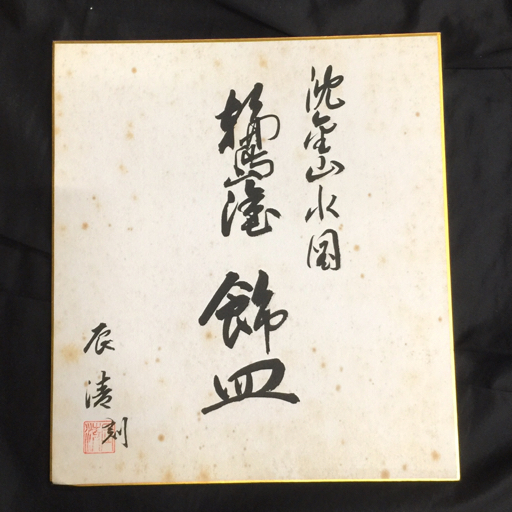 沈金山水図
輪島塗 飾皿
辰清刻